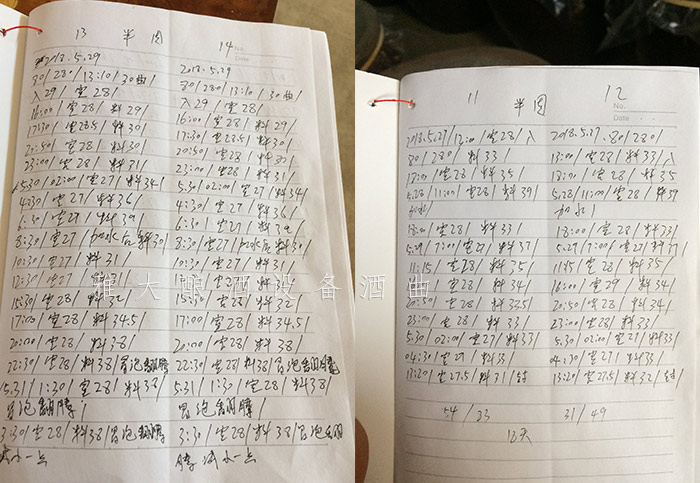 13 半肉 14
No.
Date
2018.5.29
30/28°/13:10/30曲/
入29/室28/
16:00/室28/料29/
17:30/室28.5/料30/
20:50/室28/料30/
23:00/室28/料31/
5.30/02:00/室27/料34/
4:30/室27/料36/
6:30/室27/料39/
8:30/室27/加水后料30/
10:30/室27/料31/
12:30/室27/料31/
15:30/室28/料32/
17:00/室28/料34.5/
20:00/室28/料38/
22:30/室28/料38/冒泡翻腾
5.31/1:30/室28/料38/
冒泡翻腾/
3:30/室28/料38/冒泡翻腾
减小一点
2018.5.29
30/280/13:10/30曲/
入29/室28/
16:00/室28/料29/
17:30/室28.5/料30/
20:50/室28/料30/
23:00/室28/料31/
5.30/02:00/室27/料34/
4:30/室27/料36/
6:30/室27/料39/
8:30/室27/加水后料30/
10:30/室27/料31/
室27/料31/
15:30/室28/料32/
17:00/室28/料34.5/
20:00/室28/料38/
22:30/室28/料38/冒泡翻腾
5.31/1:30/室28/料38/
冒泡翻腾/
3:30/室28/料38/冒泡翻
腾减小一点
雅大酿酒设备酒曲
11 半肉 12
No.
Date
2018.5.27/12:00/室28/入
30/280/料33/
18:00/室28/料35/
5.28/11:00/室28/料39/
加水/
18:00/室28/料33/
5.29/7:00/室27/料37/
11:15/室28/料35/
室28/料34/
20:50/室28/料33.5/
23:00/室28/料33/
5.30/02:00/室27/料33/
04:30/室27/料33/
13:20/室27.5/料31/封
54/33
2018.5.27.30/280/
13:00/室28/料33/入
18:00/室28/料35/
5.28/11:00/室28/料39
加水/
18:00/室28/料33/
5.29/7:00/室27/料37/
11:15/室28/料35/
16:00/室29/料34/
20:50/室28/料34/
23:00/室28/料33/
5.30/02:00/室27/料33/
04:30/室27/料33/
13:20/室27.5/料32/封/
31/49
12天